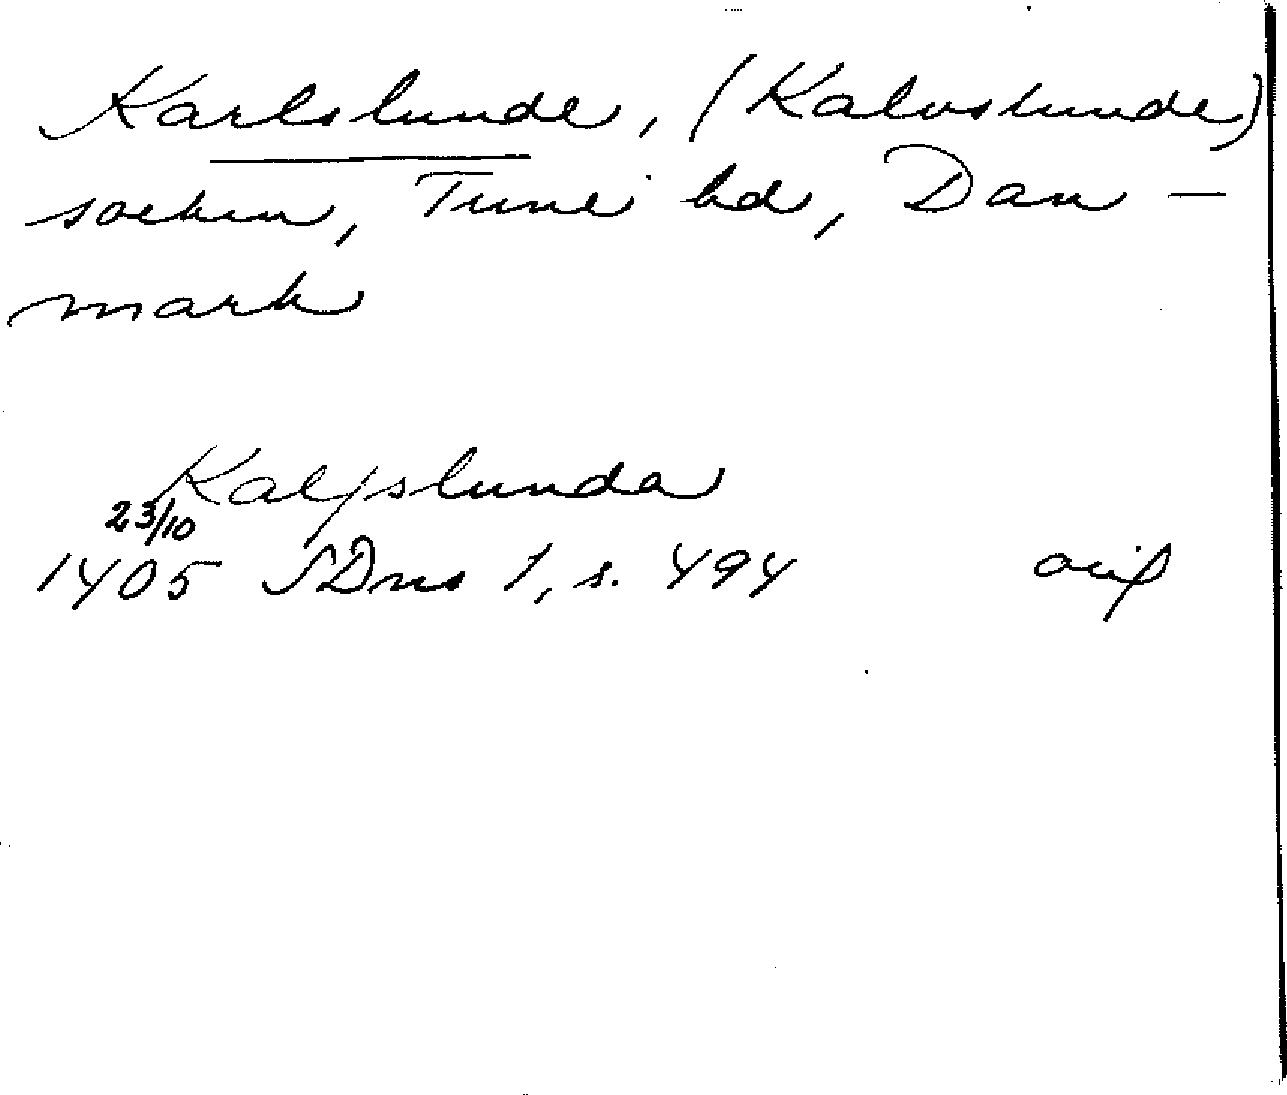 Karlslunde, (Kalvslunde)
socken, Tune hd, Dan-
mark
Kalfslunda
23/10
1405 SDns 1, s. 494 orig